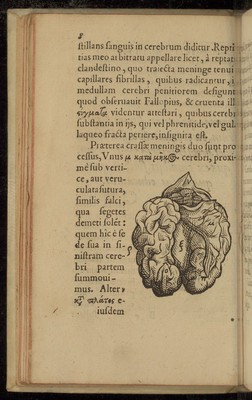 8
stillans sanguis in cerebrum diditur. Repti
tias meo arbitratu appellare licet, à reptatu
clandestino, quo traiecta meninge tenui
capillares fibrillas, quibus radicantur, in
medullam cerebri penitiorem defigunt
quod obseruauit Fallopius, & cruenta illa
videntur attestari, quibus cerebri
substantia in ijs, qui vel phrenitide, vel gula
laqueo fracta periere, insignita est.
Præterea crassæ meningis duo sunt pro
cessus, Vnus κατὰ μῆκος cerebri, proxi-
mè sub verti-
ce, aut veru-
culata sutura,
similis falci,
qua segetes
demeti solẽt:
quem hîc è se
de sua in si-
nistram cere-
bri partem
summoui-
mus. Alter
πλάτος e-
iusdem